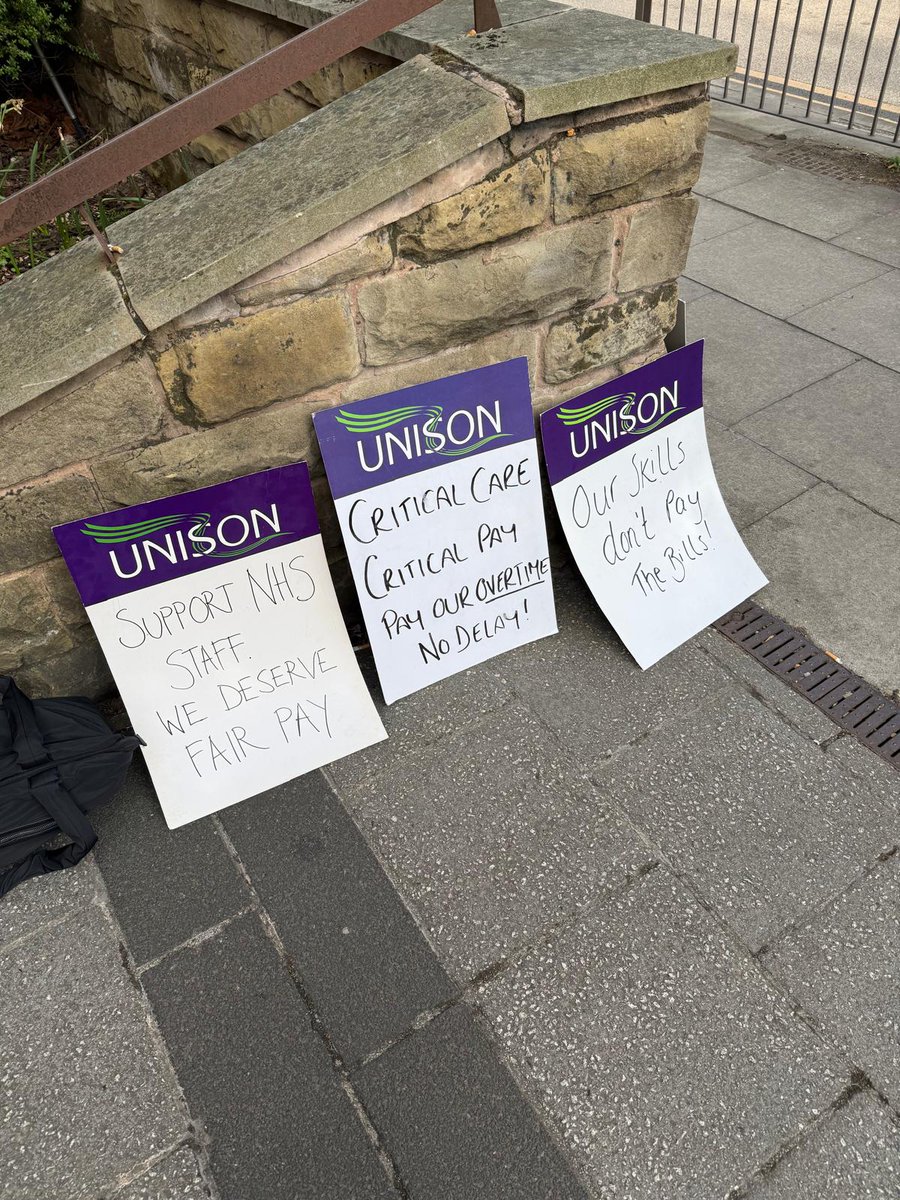 UNISON
SUPPORT NHS
STAFF.
WE DESERVE
FAIR PAY
UNISON
CRITICAL CARE
CRITICAL PAY
PAY OUR OVERTIME
NO DELAY!
UNISON
Our Skills
don't Pay
The Bills!